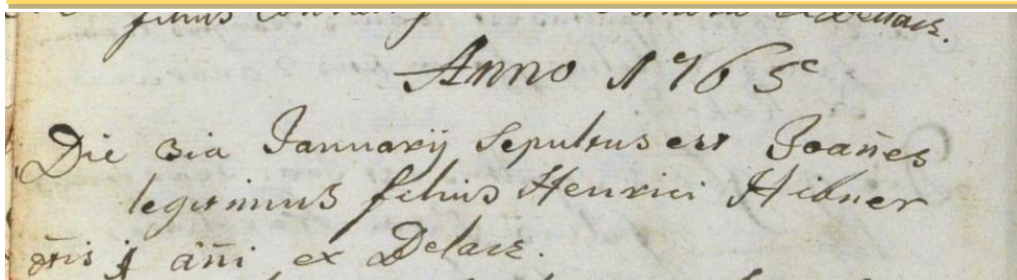 filius
Anno 1765
Die 3ia Januarij Sepultus est Joañes
legitimus filius Henrici Hibner
añi ex Delacz.